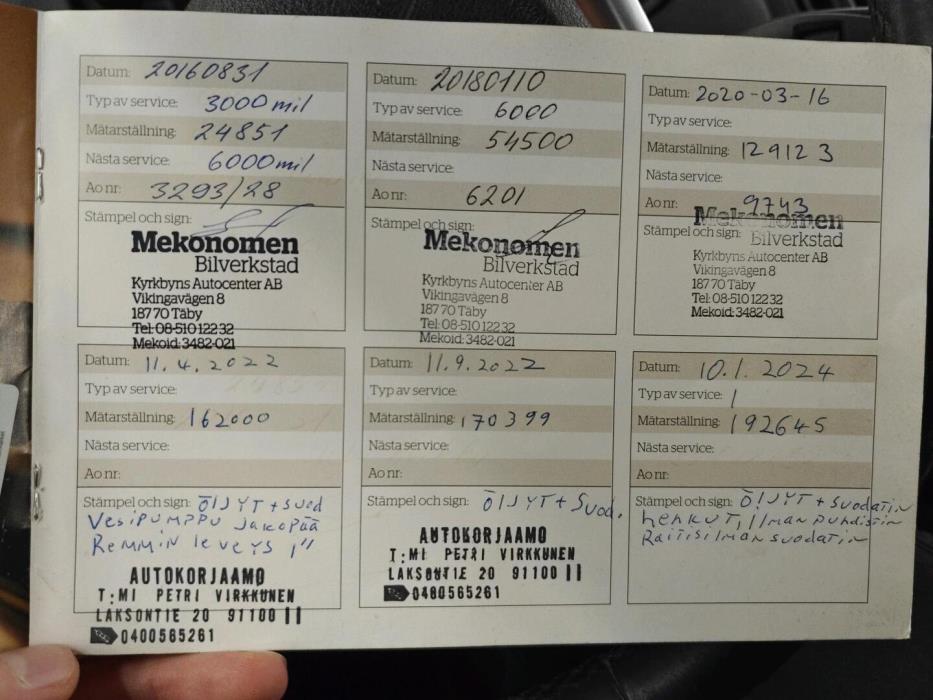 Datum: 20160831
Typ av service: 3000 mil
Mätarställning: 24851
Nästa service: 6000 mil
Ao nr: 3293/28
Stämpel och sign:
Mekonomen
Bilverkstad
Kyrkbyns Autocenter AB
Vikingavägen 8
187 70 Täby
Tel: 08-510 122 32
Mekoid: 3482-021
Datum: 20180110
Typ av service: 6000
Mätarställning: 54500
Nästa service:
Ao nr: 6201
Stämpel och sign:
Mekonomen
Bilverkstad
Kyrkbyns Autocenter AB
Vikingavägen 8
187 70 Täby
Tel: 08-510 122 32
Mekoid: 3482-021
Datum: 2020-03-16
Typ av service:
Mätarställning: 129123
Nästa service:
Ao nr: 9743
Stämpel och sign:
Mekonomen
Bilverkstad
Kyrkbyns Autocenter AB
Vikingavägen 8
187 70 Täby
Tel: 08-510 122 32
Mekoid: 3482-021
Datum: 11.4.2022
Typ av service:
Mätarställning: 162000
Nästa service:
Ao nr:
Stämpel och sign: ÖlJYT + suod
VesiPUMPPU Jakopää
Remmin leveys 1"
AUTOKORJAAMO
T:MI PETRI VIRKKUNEN
LAKSONTIE 20 91100 II
0400565261
Datum: 11.9.2022
Typ av service:
Mätarställning: 170399
Nästa service:
Ao nr:
Stämpel och sign: ÖlJYT + Suod.
AUTOKORJAAMO
T:MI PETRI VIRKKUNEN
LAKSONTIE 20 91100 II
0400565261
Datum: 10.1.2024
Typ av service:
Mätarställning: 192645
Nästa service:
Ao nr:
Stämpel och sign: ÖlJYT + suodatin
henkut, ilman puhdistin
Raitisilman suodatin